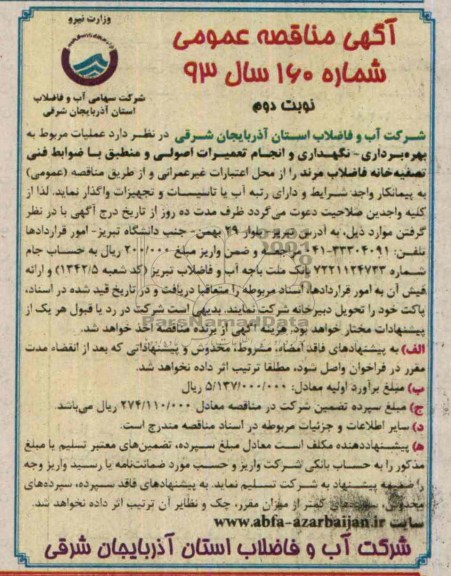 وزارت نیرو
آگهی مناقصه عمومی
شماره ۱۶۰ سال ۹۳
نوبت دوم
شرکت سهامی آب و فاضلاب
استان آذربایجان شرقی
شرکت آب و فاضلاب استان آذربایجان شرقی در نظر دارد عملیات مربوط به
بهره‌برداری - نگهداری و انجام تعمیرات اصولی و منطبق با ضوابط فنی
تصفیه‌خانه فاضلاب مرند را از محل اعتبارات غیرعمرانی و از طریق مناقصه (عمومی)
به پیمانکار واجد شرایط و دارای رتبه آب یا تاسیسات و تجهیزات واگذار نماید. لذا از
کلیه واجدین صلاحیت دعوت می‌گردد ظرف مدت ده روز از تاریخ درج آگهی با در نظر
گرفتن موارد ذیل، به آدرس تبریز - بلوار ۲۹ بهمن - جنب دانشگاه تبریز - امور قراردادها
تلفن: ۳۳۳۰۴۰۹۱-۰۴۱ مراجعه و ضمن واریز مبلغ ۲۰۰/۰۰۰ ریال به حساب جام
شماره ۷۲۲۱۱۲۴۷۳۳ بانک ملت باجه آب و فاضلاب تبریز (کد شعبه ۱۳۴۲/۵) و ارائه
فیش آن به امور قراردادها، اسناد مربوطه را متعاقبا دریافت و در تاریخ قید شده در اسناد،
پاکت خود را تحویل دبیرخانه شرکت نمایند. بدیهی است شرکت در رد یا قبول هر یک از
پیشنهادات مختار خواهد بود. هزینه آگهی از برنده مناقصه اخذ خواهد شد.
الف) به پیشنهادهای فاقد امضاء، مشروط، مخدوش و پیشنهاداتی که بعد از انقضاء مدت
مقرر در فراخوان واصل شود، مطلقا ترتیب اثر داده نخواهد شد.
ب) مبلغ برآورد اولیه معادل: ۵/۱۳۷/۰۰۰/۰۰۰ ریال
ج) مبلغ سپرده تضمین شرکت در مناقصه معادل ۲۷۴/۱۱۰/۰۰۰ ریال می‌باشد.
د) سایر اطلاعات و جزئیات مربوطه در اسناد مناقصه مندرج است.
ه) پیشنهاددهنده مکلف است معادل مبلغ سپرده، تضمین‌های معتبر تسلیم یا مبلغ
مذکور را به حساب بانکی شرکت واریز و حسب مورد ضمانت‌نامه یا رسید واریز وجه
را ضمیمه پیشنهاد به شرکت تسلیم نماید. به پیشنهادهای فاقد سپرده، سپرده‌های
مخدوش، سپرده‌های کمتر از میزان مقرر، چک و نظایر آن ترتیب اثر داده نخواهد شد.
سایت www.abfa-azarbaijan.ir
شرکت آب و فاضلاب استان آذربایجان شرقی